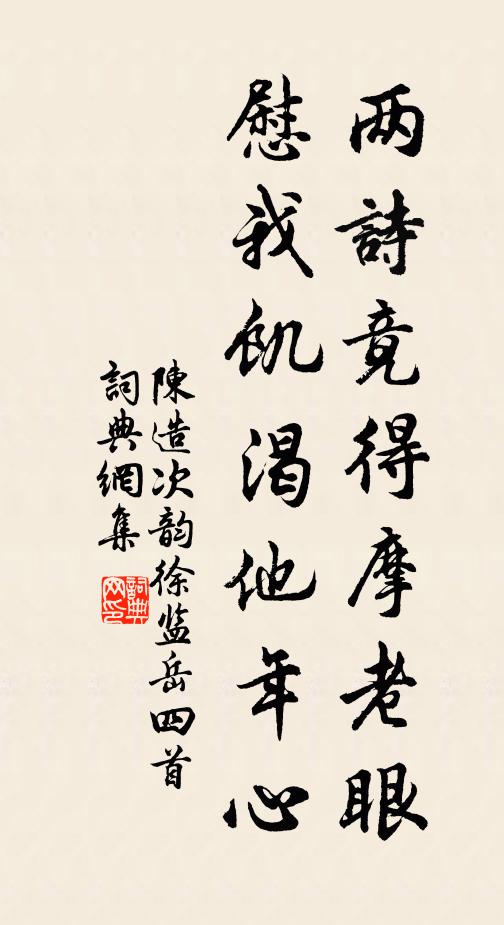 两詩竟得摩老眼
慰我飢渴他年心
陳造次韵徐监岳四首
詞典網集
詞典网印